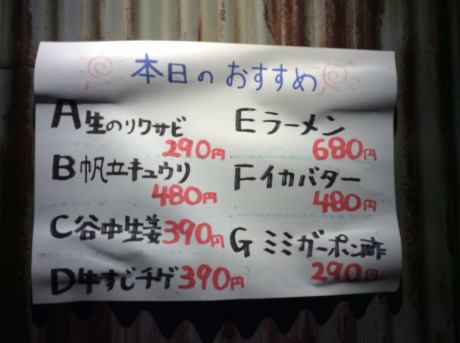 本日のおすすめ
A生のリクサビ
290円
B帆立キュウリ
480円
C谷中生姜390円
D牛すじチゲ390円
Eラーメン
680円
Fイカバター
480円
Gミミガーポン酢
290円